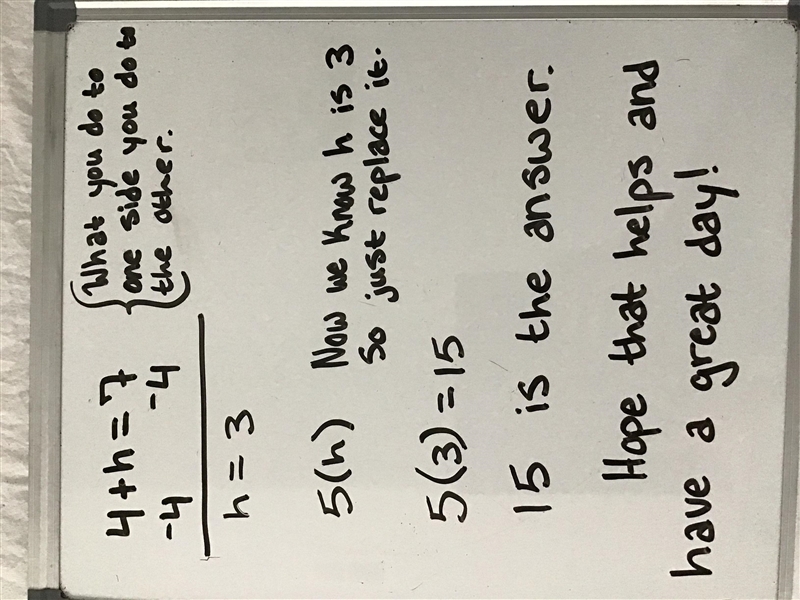 4+h=7 { What you do to
-4 -4 one side you do to
the other.
h=3
5(h) Now we know h is 3
So just replace it.
5(3)=15
15 is the answer.
Hope that helps and
have a great day!